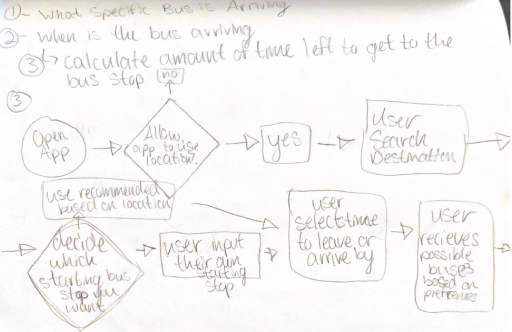 ① - What Specific Bus is Arriving
② - When is the bus arriving
③ calculate amount of time left to get to the
bus stop
no
③
Open
App
Allow
app to use
location?
yes
User
Search
Destination
use recommended
based on location
decide
which
starting bus
stop you
want
user input
their own
starting
stop
user
selects time
to leave or
arrive by
user
recieves
possible
buses
based on
preferences